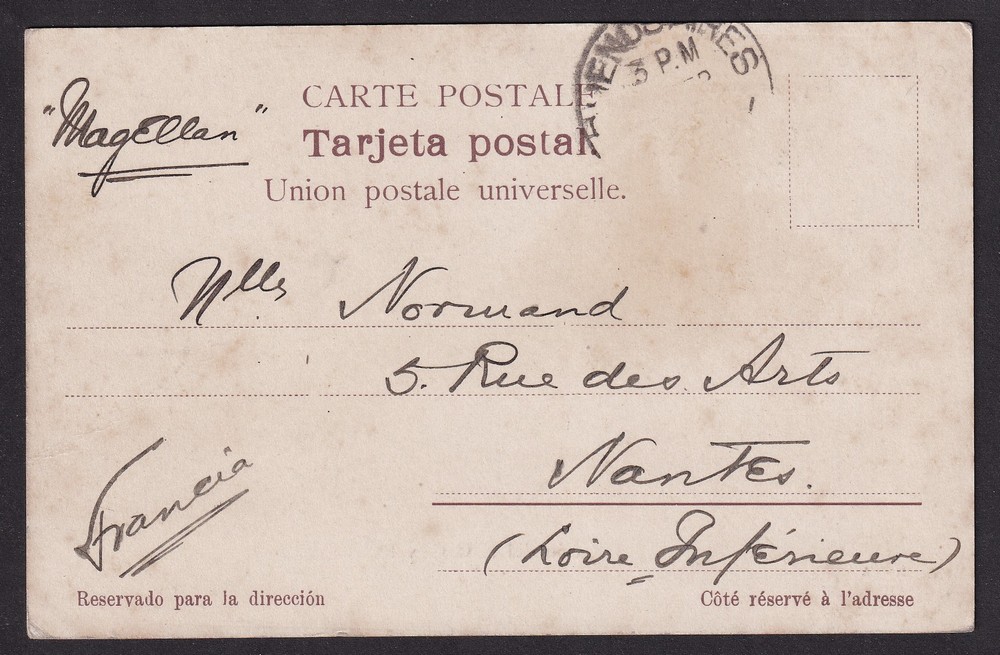 BUENOS AIRES
3 P.M
"Magellan"
CARTE POSTALE
Tarjeta postal
Union postale universelle.
Mlles Normand
5. Rue des Arts
Nantes.
Francia
(Loire Inférieure)
Reservado para la dirección
Côté réservé à l'adresse